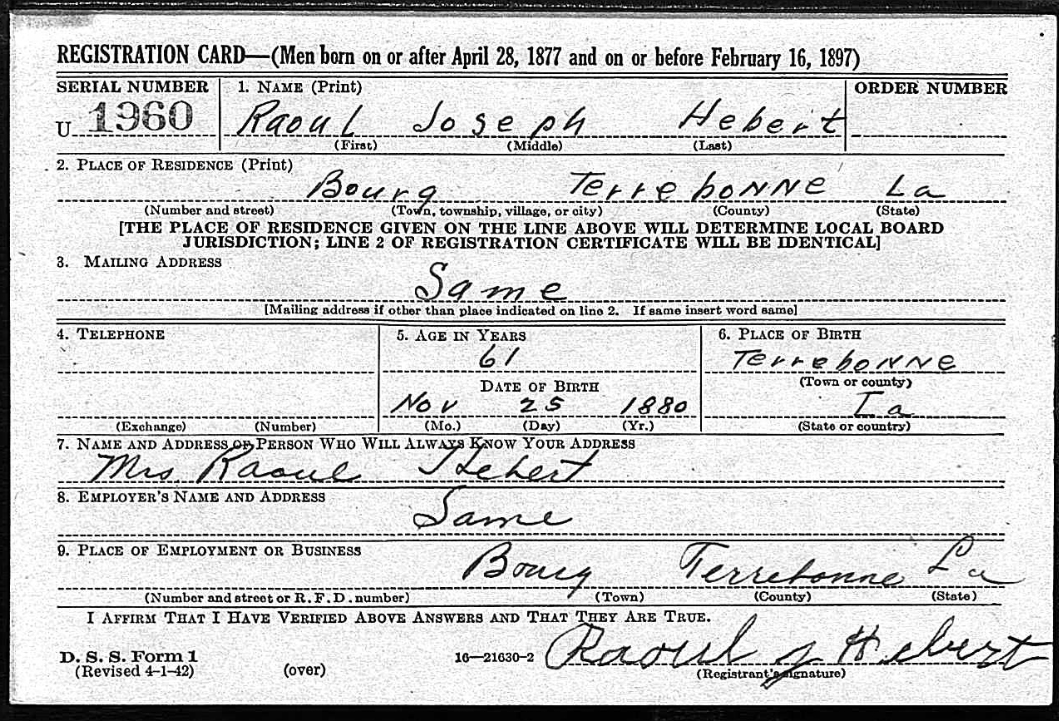 REGISTRATION CARD—(Men born on or after April 28, 1877 and on or before February 16, 1897)
SERIAL NUMBER 1. NAME (Print) ORDER NUMBER
U 1960 Raoul Joseph Hebert
(First) (Middle) (Last)
2. PLACE OF RESIDENCE (Print)
Bourg Terrebonne La
(Number and street) (Town, township, village, or city) (County) (State)
[THE PLACE OF RESIDENCE GIVEN ON THE LINE ABOVE WILL DETERMINE LOCAL BOARD
JURISDICTION; LINE 2 OF REGISTRATION CERTIFICATE WILL BE IDENTICAL]
3. MAILING ADDRESS
Same
[Mailing address if other than place indicated on line 2. If same insert word same]
4. TELEPHONE 5. AGE IN YEARS 6. PLACE OF BIRTH
61 Terrebonne
DATE OF BIRTH (Town or county)
Nov 25 1880 La
(Exchange) (Number) (Mo.) (Day) (Yr.) (State or country)
7. NAME AND ADDRESS OF PERSON WHO WILL ALWAYS KNOW YOUR ADDRESS
Mrs Raoul Hebert
8. EMPLOYER'S NAME AND ADDRESS
Same
9. PLACE OF EMPLOYMENT OR BUSINESS
Bourg Terrebonne La
(Number and street or R. F. D. number) (Town) (County) (State)
I AFFIRM THAT I HAVE VERIFIED ABOVE ANSWERS AND THAT THEY ARE TRUE.
D. S. S. Form 1 16—21630-2 Raoul J Hebert
(Revised 4-1-42) (over) (Registrant's signature)